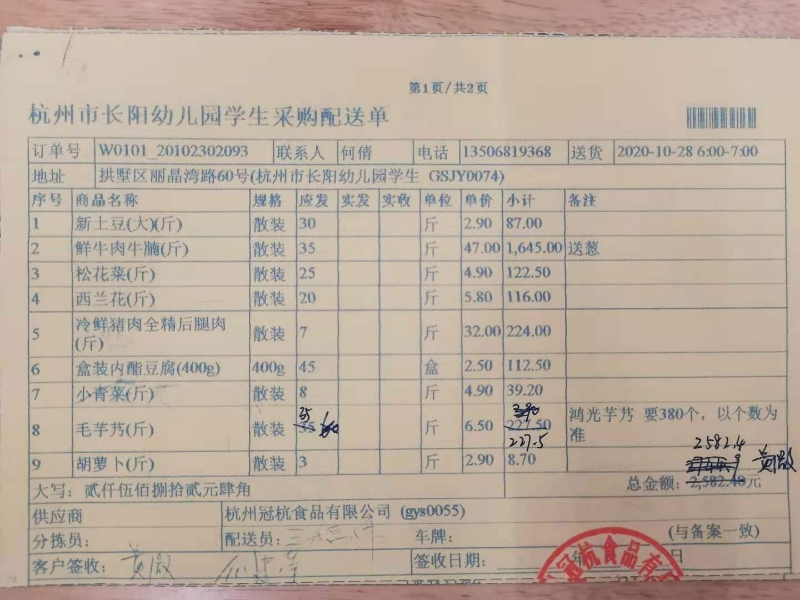 第1页/共2页
杭州市长阳幼儿园学生采购配送单
订单号 W0101_20102302093 联系人 何倩 电话 13506819368 送货 2020-10-28 6:00-7:00
地址 拱墅区丽晶湾路60号(杭州市长阳幼儿园学生 GSJY0074)
序号 商品名称 规格 应发 实发 实收 单位 单价 小计 备注
1 新土豆(大)(斤) 散装 30 斤 2.90 87.00
2 鲜牛肉牛腩(斤) 散装 35 斤 47.00 1,645.00 送葱
3 松花菜(斤) 散装 25 斤 4.90 122.50
4 西兰花(斤) 散装 20 斤 5.80 116.00
5 冷鲜猪肉全精后腿肉
(斤) 散装 7 斤 32.00 224.00
6 盒装内酯豆腐(400g) 400g 45 盒 2.50 112.50
7 小青菜(斤) 散装 8 斤 4.90 39.20
35 390
8 毛芋艿(斤) 散装 35 60 斤 6.50 227.50 鸿光芋艿 要380个，以个数为
准
227.5
2582.4
9 胡萝卜(斤) 散装 3 斤 2.90 8.70
大写：贰仟伍佰捌拾贰元肆角 总金额：2,582.40元
供应商 杭州冠杭食品有限公司 (gys0055)
分拣员： 配送员： 车牌： (与备案一致)
客户签收： 签收日期： 年 日
冠杭食品有限